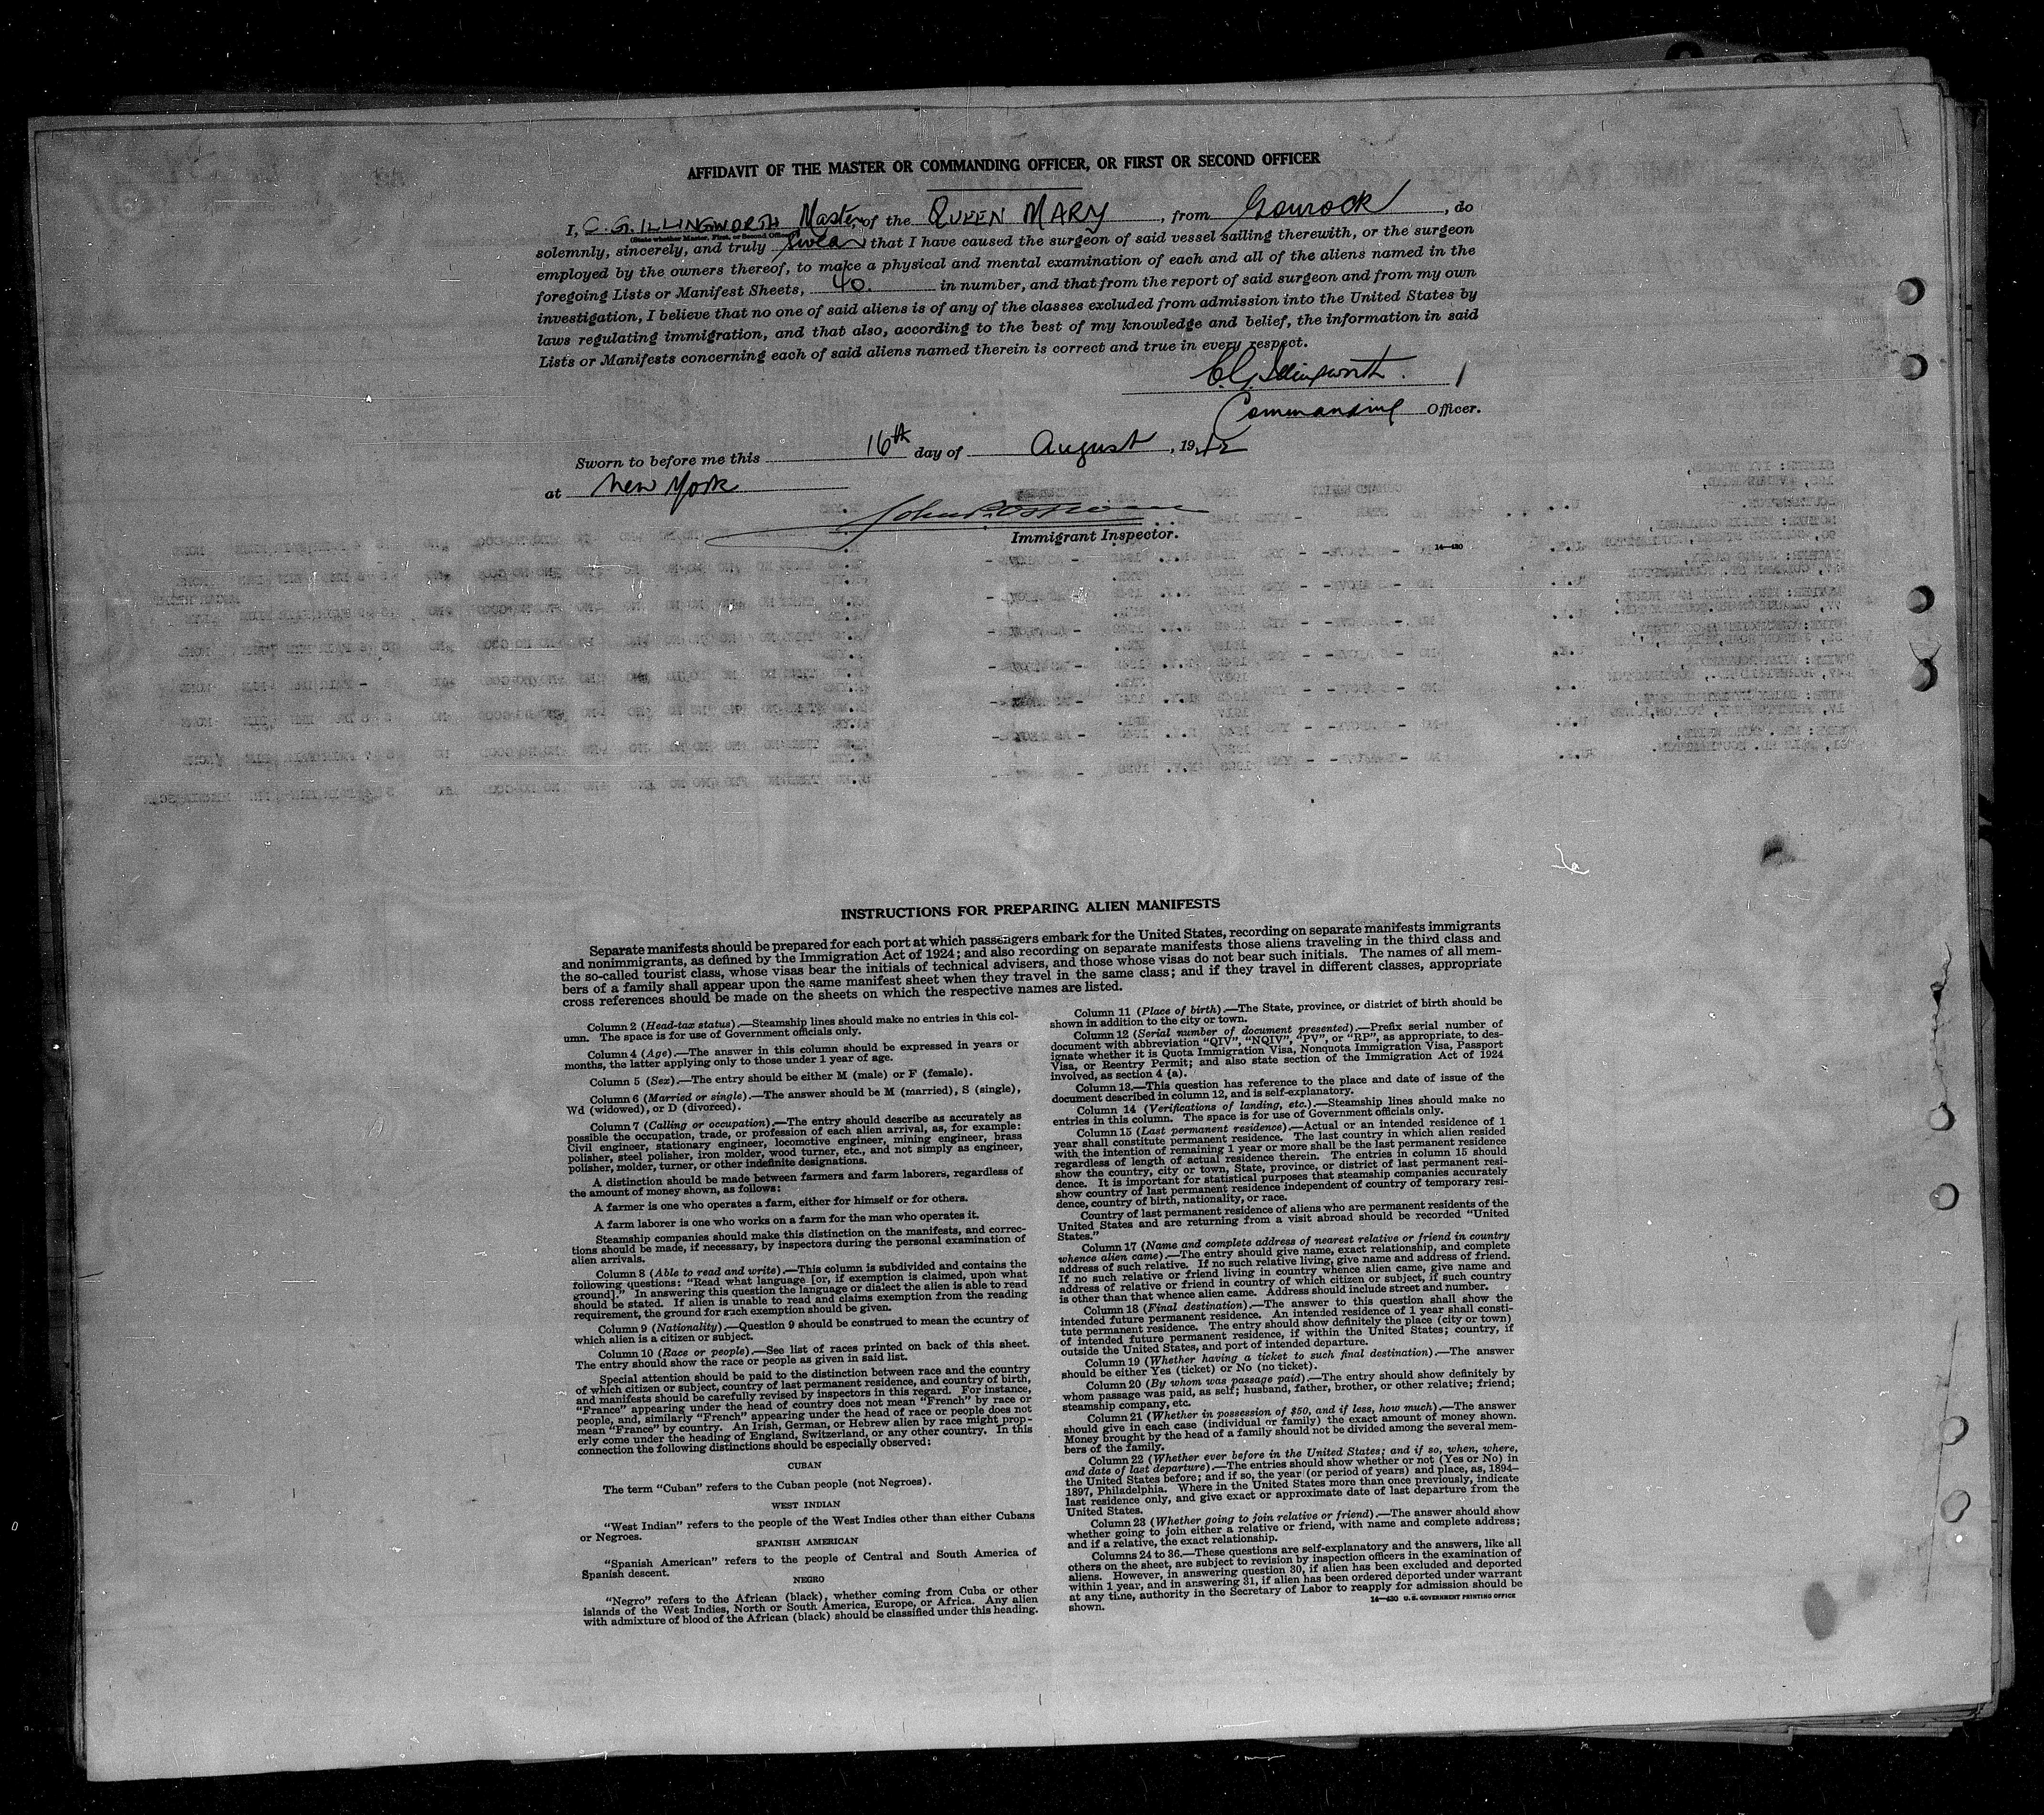 AFFIDAVIT OF THE MASTER OR COMMANDING OFFICER, OR FIRST OR SECOND OFFICER
I, C. G. ILLINGWORTH Master, of the QUEEN MARY, from Gourock, do
(State whether Master, First, or Second Officer)
solemnly, sincerely, and truly swear that I have caused the surgeon of said vessel sailing therewith, or the surgeon
employed by the owners thereof, to make a physical and mental examination of each and all of the aliens named in the
foregoing Lists or Manifest Sheets, 40. in number, and that from the report of said surgeon and from my own
investigation, I believe that no one of said aliens is of any of the classes excluded from admission into the United States by
laws regulating immigration, and that also, according to the best of my knowledge and belief, the information in said
Lists or Manifests concerning each of said aliens named therein is correct and true in every respect.
C. G. Illingworth.
Commanding Officer.
Sworn to before me this 16th day of August, 1942
at New York
Immigrant Inspector.
14—430
INSTRUCTIONS FOR PREPARING ALIEN MANIFESTS
Separate manifests should be prepared for each port at which passengers embark for the United States, recording on separate manifests immigrants
and nonimmigrants, as defined by the Immigration Act of 1924; and also recording on separate manifests those aliens traveling in the third class and
the so-called tourist class, whose visas bear the initials of technical advisers, and those whose visas do not bear such initials. The names of all mem-
bers of a family shall appear upon the same manifest sheet when they travel in the same class; and if they travel in different classes, appropriate
cross references should be made on the sheets on which the respective names are listed.
Column 2 (Head-tax status).—Steamship lines should make no entries in this col-
umn. The space is for use of Government officials only.
Column 4 (Age).—The answer in this column should be expressed in years or
months, the latter applying only to those under 1 year of age.
Column 5 (Sex).—The entry should be either M (male) or F (female).
Column 6 (Married or single).—The answer should be M (married), S (single),
Wd (widowed), or D (divorced).
Column 7 (Calling or occupation).—The entry should describe as accurately as
possible the occupation, trade, or profession of each alien arrival, as, for example:
Civil engineer, stationary engineer, locomotive engineer, mining engineer, brass
polisher, steel polisher, iron molder, wood turner, etc., and not simply as engineer,
polisher, molder, turner, or other indefinite designations.
A distinction should be made between farmers and farm laborers, regardless of
the amount of money shown, as follows:
A farmer is one who operates a farm, either for himself or for others.
A farm laborer is one who works on a farm for the man who operates it.
Steamship companies should make this distinction on the manifests, and correc-
tions should be made, if necessary, by inspectors during the personal examination of
alien arrivals.
Column 8 (Able to read and write).—This column is subdivided and contains the
following questions: "Read what language [or, if exemption is claimed, upon what
ground]." In answering this question the language or dialect the alien is able to read
should be stated. If alien is unable to read and claims exemption from the reading
requirement, the ground for such exemption should be given.
Column 9 (Nationality).—Question 9 should be construed to mean the country of
which alien is a citizen or subject.
Column 10 (Race or people).—See list of races printed on back of this sheet.
The entry should show the race or people as given in said list.
Special attention should be paid to the distinction between race and the country
of which citizen or subject, country of last permanent residence, and country of birth,
and manifests should be carefully revised by inspectors in this regard. For instance,
"France" appearing under the head of country does not mean "French" by race or
people, and, similarly "French" appearing under the head of race or people does not
mean "France" by country. An Irish, German, or Hebrew alien by race might prop-
erly come under the heading of England, Switzerland, or any other country. In this
connection the following distinctions should be especially observed:
CUBAN
The term "Cuban" refers to the Cuban people (not Negroes).
WEST INDIAN
"West Indian" refers to the people of the West Indies other than either Cubans
or Negroes.
SPANISH AMERICAN
"Spanish American" refers to the people of Central and South America of
Spanish descent.
NEGRO
"Negro" refers to the African (black), whether coming from Cuba or other
islands of the West Indies, North or South America, Europe, or Africa. Any alien
with admixture of blood of the African (black) should be classified under this heading.
Column 11 (Place of birth).—The State, province, or district of birth should be
shown in addition to the city or town.
Column 12 (Serial number of document presented).—Prefix serial number of
document with abbreviation "QIV", "NQIV", "PV", or "RP", as appropriate, to des-
ignate whether it is Quota Immigration Visa, Nonquota Immigration Visa, Passport
Visa, or Reentry Permit; and also state section of the Immigration Act of 1924
involved, as section 4 (a).
Column 13.—This question has reference to the place and date of issue of the
document described in column 12, and is self-explanatory.
Column 14 (Verifications of landing, etc.).—Steamship lines should make no
entries in this column. The space is for use of Government officials only.
Column 15 (Last permanent residence).—Actual or an intended residence of 1
year shall constitute permanent residence. The last country in which alien resided
with the intention of remaining 1 year or more shall be the last permanent residence
regardless of length of actual residence therein. The entries in column 15 should
show the country, city or town, State, province, or district of last permanent resi-
dence. It is important for statistical purposes that steamship companies accurately
show country of last permanent residence independent of country of temporary resi-
dence, country of birth, nationality, or race.
Country of last permanent residence of aliens who are permanent residents of the
United States and are returning from a visit abroad should be recorded "United
States."
Column 17 (Name and complete address of nearest relative or friend in country
whence alien came).—The entry should give name, exact relationship, and complete
address of such relative. If no such relative living, give name and address of friend.
If no such relative or friend living in country whence alien came, give name and
address of relative or friend in country of which citizen or subject, if such country
is other than that whence alien came. Address should include street and number.
Column 18 (Final destination).—The answer to this question shall show the
intended future permanent residence. An intended residence of 1 year shall consti-
tute permanent residence. The entry should show definitely the place (city or town)
of intended future permanent residence, if within the United States; country, if
outside the United States, and port of intended departure.
Column 19 (Whether having a ticket to such final destination).—The answer
should be either Yes (ticket) or No (no ticket).
Column 20 (By whom was passage paid).—The entry should show definitely by
whom passage was paid, as self; husband, father, brother, or other relative; friend;
steamship company, etc.
Column 21 (Whether in possession of $50, and if less, how much).—The answer
should give in each case (individual or family) the exact amount of money shown.
Money brought by the head of a family should not be divided among the several mem-
bers of the family.
Column 22 (Whether ever before in the United States; and if so, when, where,
and date of last departure).—The entries should show whether or not (Yes or No) in
the United States before; and if so, the year (or period of years) and place, as, 1894–
1897, Philadelphia. Where in the United States more than once previously, indicate
last residence only, and give exact or approximate date of last departure from the
United States.
Column 23 (Whether going to join relative or friend).—The answer should show
whether going to join either a relative or friend, with name and complete address;
and if a relative, the exact relationship.
Columns 24 to 36.—These questions are self-explanatory and the answers, like all
others on the sheet, are subject to revision by inspection officers in the examination of
aliens. However, in answering question 30, if alien has been excluded and deported
within 1 year, and in answering 31, if alien has been ordered deported under warrant
at any time, authority in the Secretary of Labor to reapply for admission should be
shown.
14—430 U. S. GOVERNMENT PRINTING OFFICE